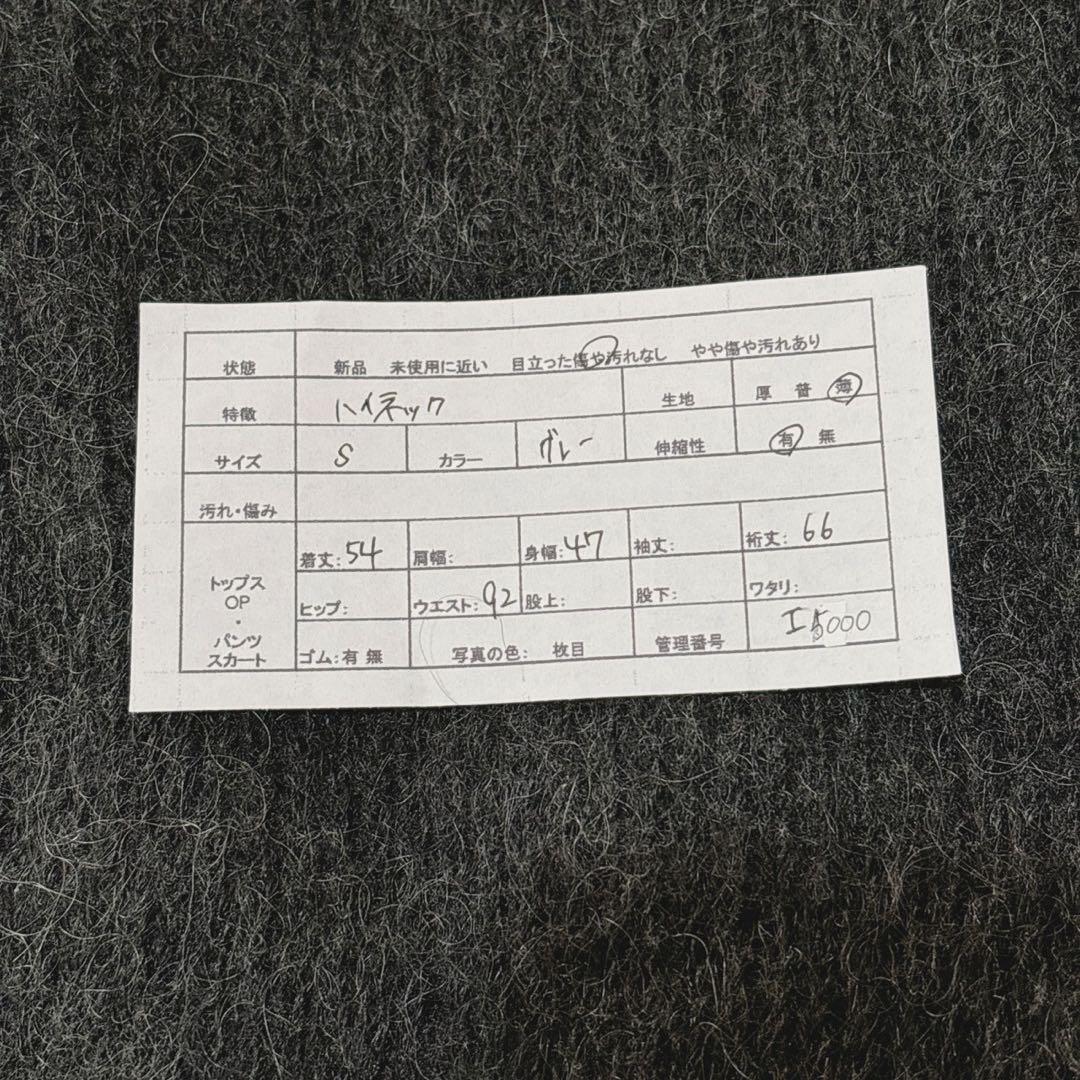 状態 新品 未使用に近い 目立った傷や汚れなし やや傷や汚れあり
特徴 ハイネック 生地 厚 普 薄
サイズ S カラー グレー 伸縮性 有 無
汚れ・傷み
トップス OP ・ パンツ スカート
着丈:54 肩幅: 身幅:47 袖丈: 裄丈:66
ヒップ: ウエスト:92 股上: 股下: ワタリ:
ゴム:有 無 写真の色: 枚目 管理番号 I5000